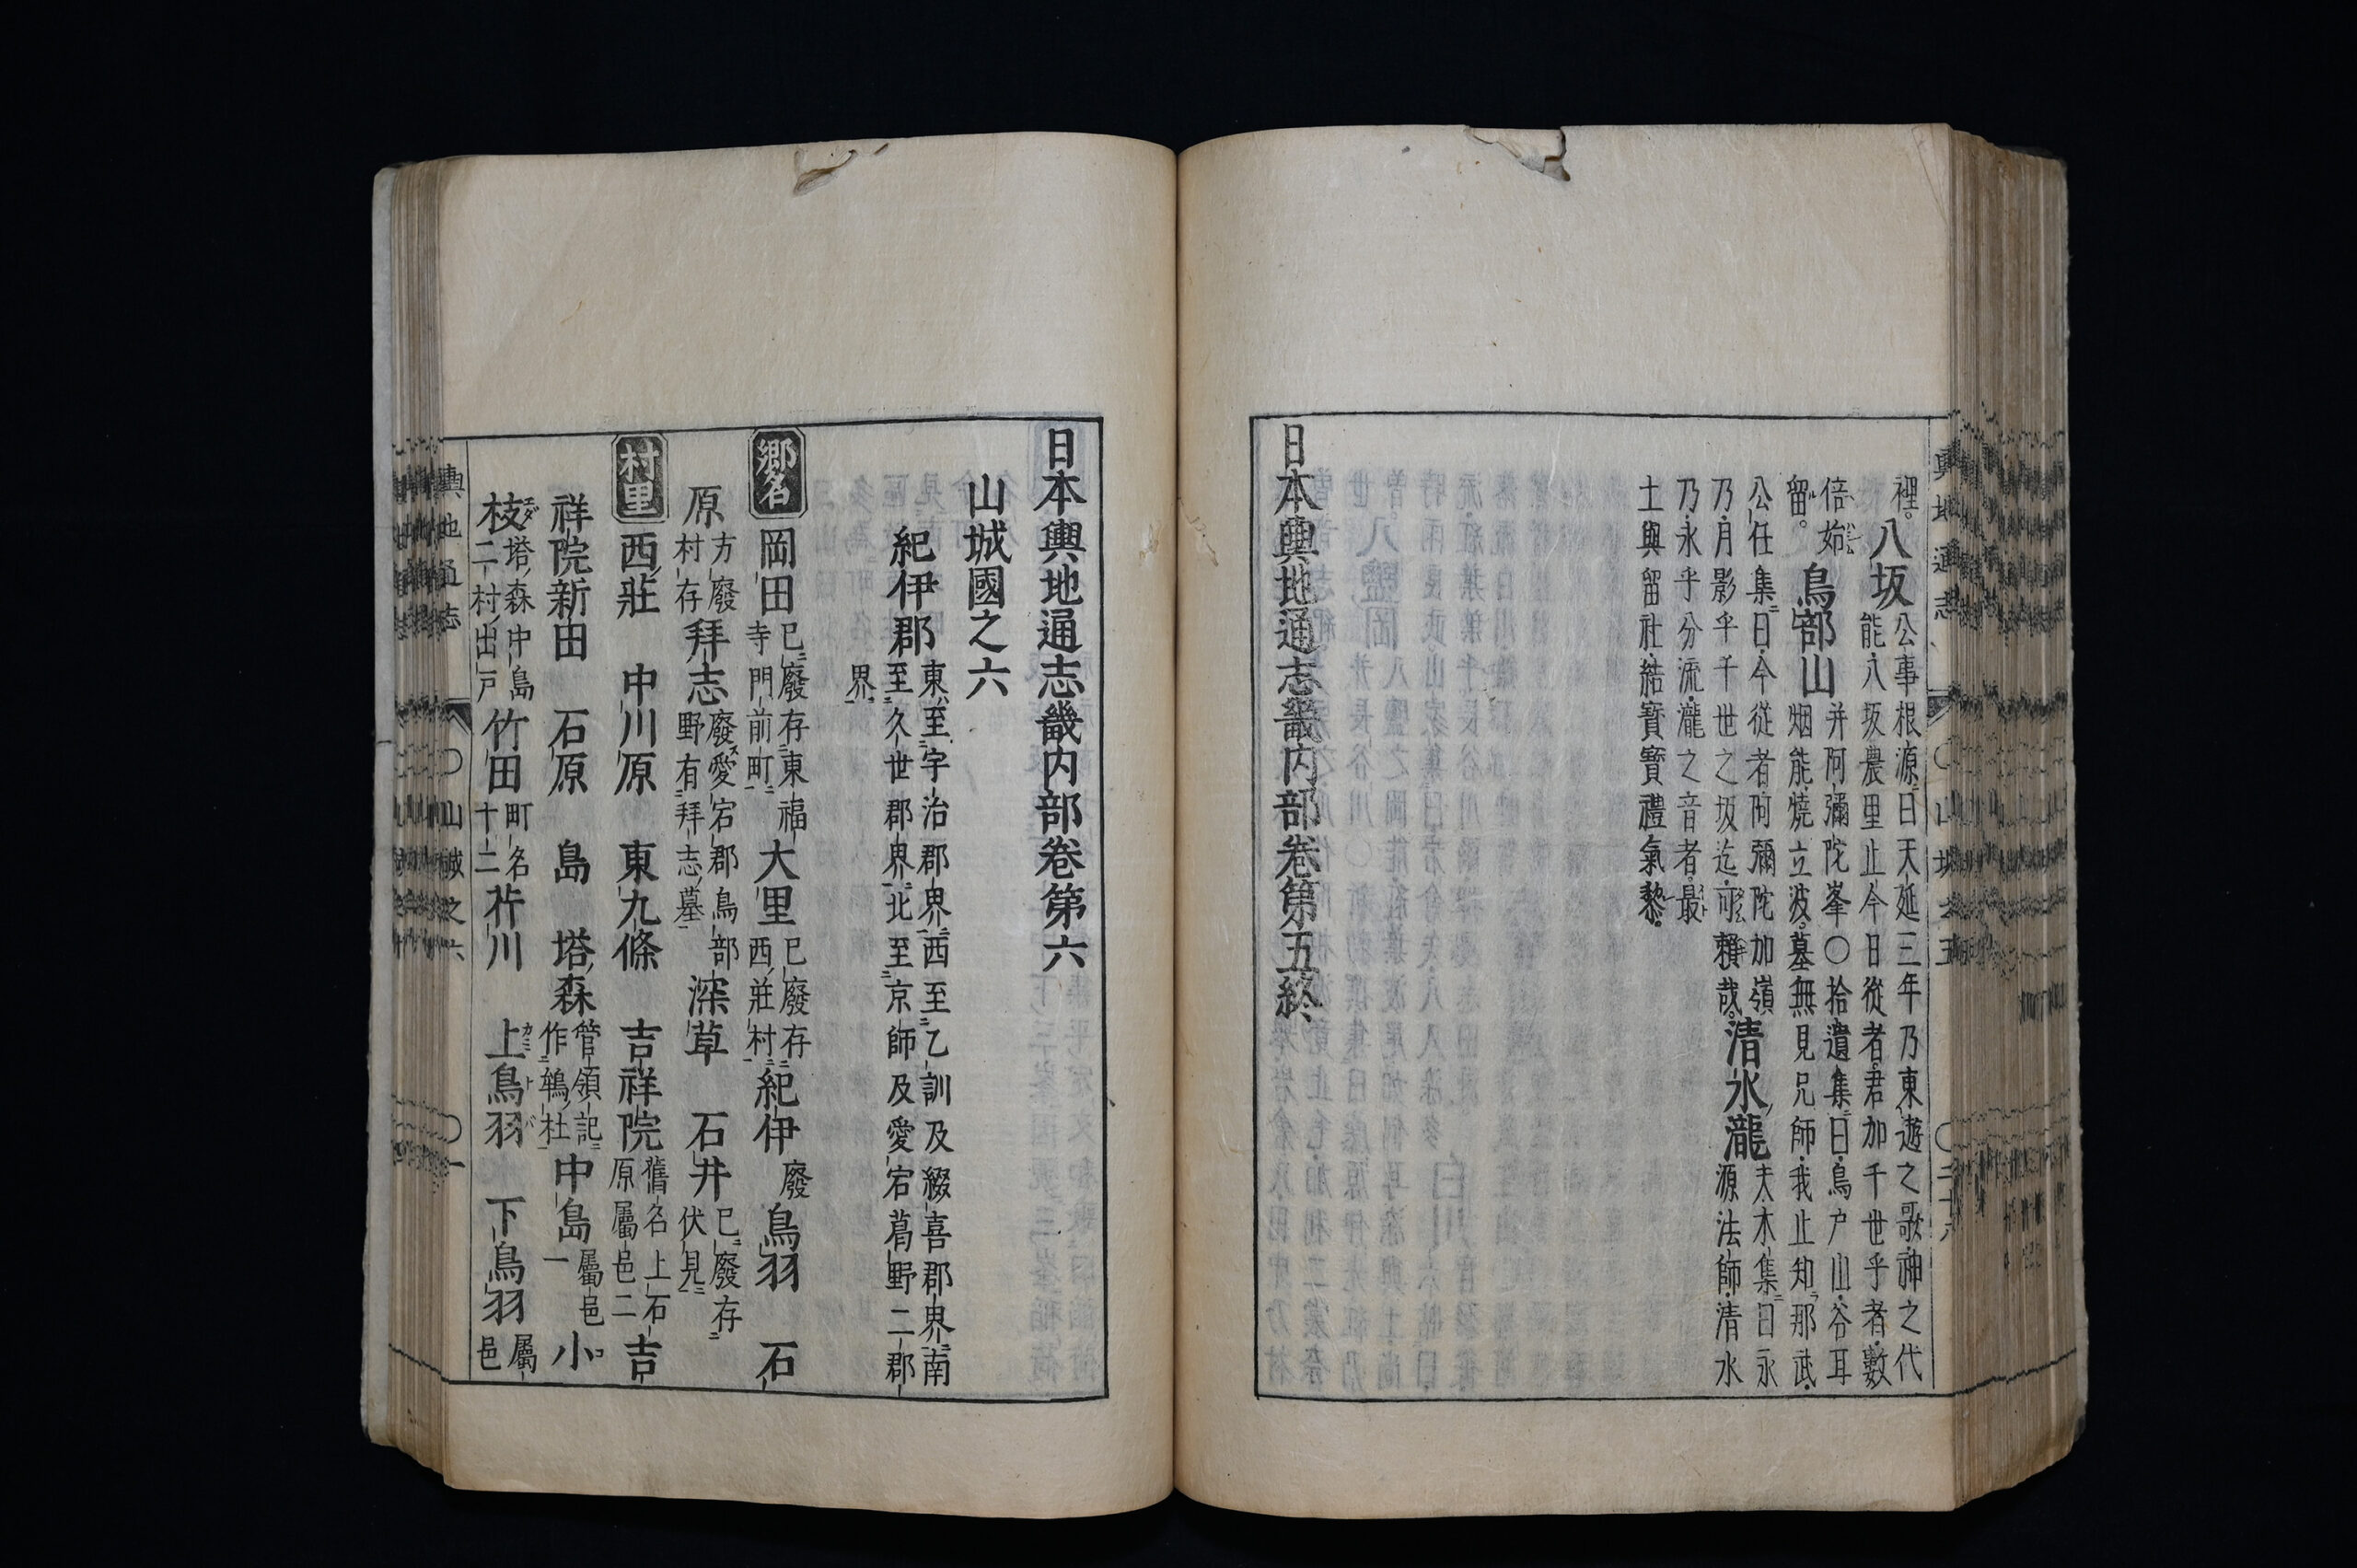 裡。八坂公事根源曰天延三年乃東遊之歌神之代
能八坂農里止今日從者君加千世乎者數
倍始鳥部山并阿彌陀峯〇拾遺集曰鳥戸山谷耳
留。烟能燒立波墓無見兄師我止知那武
公任集曰今從者阿彌陀加嶺
乃月影乎千世之坂迄賴哉清水瀧夫木集曰永
源法師清水
乃永乎分流瀧之音者最
土與留社結寳寳禮氣黎
日本輿地通志畿内部卷第五終
日本輿地通志畿内部卷第六
山城國之六
紀伊郡東至宇治郡界西至乙訓及綴喜郡界南
至久世郡界北至京師及愛宕葛野二郡
界
鄉名 岡田已廢存東福寺門前町大里已廢存西莊村紀伊廢鳥羽 石
原方廢村存拜志廢愛宕郡鳥部野有拜志墓深草 石井已廢存伏見
村里 西莊 中川原 東九條 吉祥院舊名上石原屬邑二吉
祥院新田 石原 島 塔森管領記作鵯杜中島屬邑一小
枝塔森中島二村出戸竹田町名十二 上鳥羽 下鳥羽屬邑
輿地通志 山城之六 〇一
輿地通志